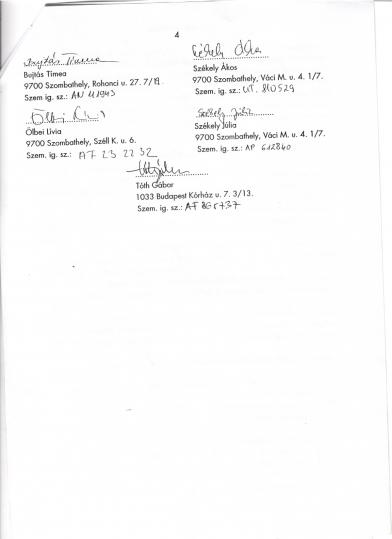 4
Bujtás Tímea
Bujtás Tímea
9700 Szombathely, Rohonci u. 27. 7/19.
Szem ig. sz.:
Székely Ákos
Székely Ákos
9700 Szombathely, Váci M. u. 4. 1/7.
Szem. ig. sz.: UT. 810529
Ölbei Livia
Ölbei Livia
9700 Szombathely, Széll K. u. 6.
Szem. ig. sz.: AT 23 22 32
Székely Júlia
Székely Júlia
9700 Szombathely, Váci M. u. 4. 1/7.
Szem. ig. sz.: AP 612840
Tóth Gábor
1033 Budapest Kórház u. 7. 3/13.
Szem. ig. sz.: